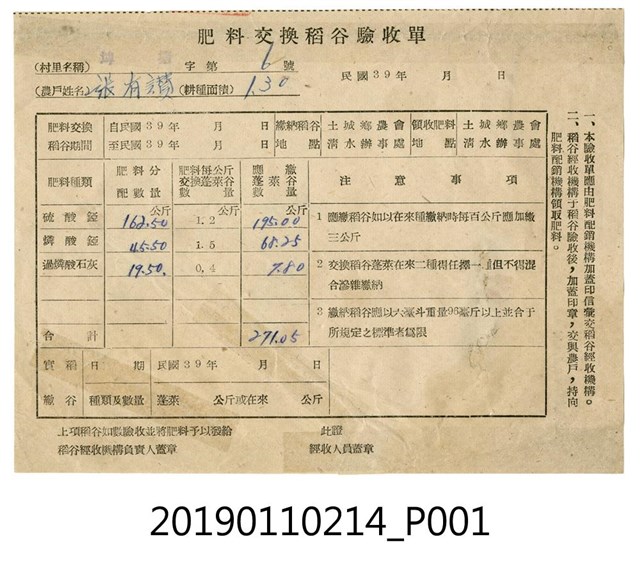 肥料交換稻谷驗收單
(村里名稱) 字第 6 號
民國39年 月 日
(農戶姓名) 張有讚 (耕種面積) 1.30
肥料交換稻谷期間 自民國39年 月 日 至民國39年 月 日
繳納稻谷地點 土城鄉農會清水辦事處
領收肥料地點 土城鄉農會清水辦事處
肥料種類 肥料分配數量 肥料每公斤交換蓬萊谷量 應繳蓬萊谷數量 注意事項
公斤 公斤 公斤
硫酸錏 162.50 1.2 195.00
燐酸錏 45.50 1.5 68.25
過燐酸石灰 19.50 0.4 7.80
合計 271.05
1 應繳稻谷如以在來種繳納時每百公斤應加繳三公斤
2 交換稻谷蓬萊在來二種得任擇一種但不得混合滲雜繳納
3 繳納稻谷應以大臺斗重量96臺斤以上並合于所規定之標準者為限
實繳稻谷 日期 民國39年 月 日
種類及數量 蓬萊 公斤或在來 公斤
上項稻谷如數驗收並將肥料予以發給 此證
稻谷經收機構負責人蓋章 經收人員蓋章
一、本驗收單應由肥料配銷機構加蓋印信彙交稻谷經收機構。
二、稻谷經收機構于稻谷驗收後，加蓋印章，交與農戶，持向肥料配銷機構領取肥料。
20190110214_P001